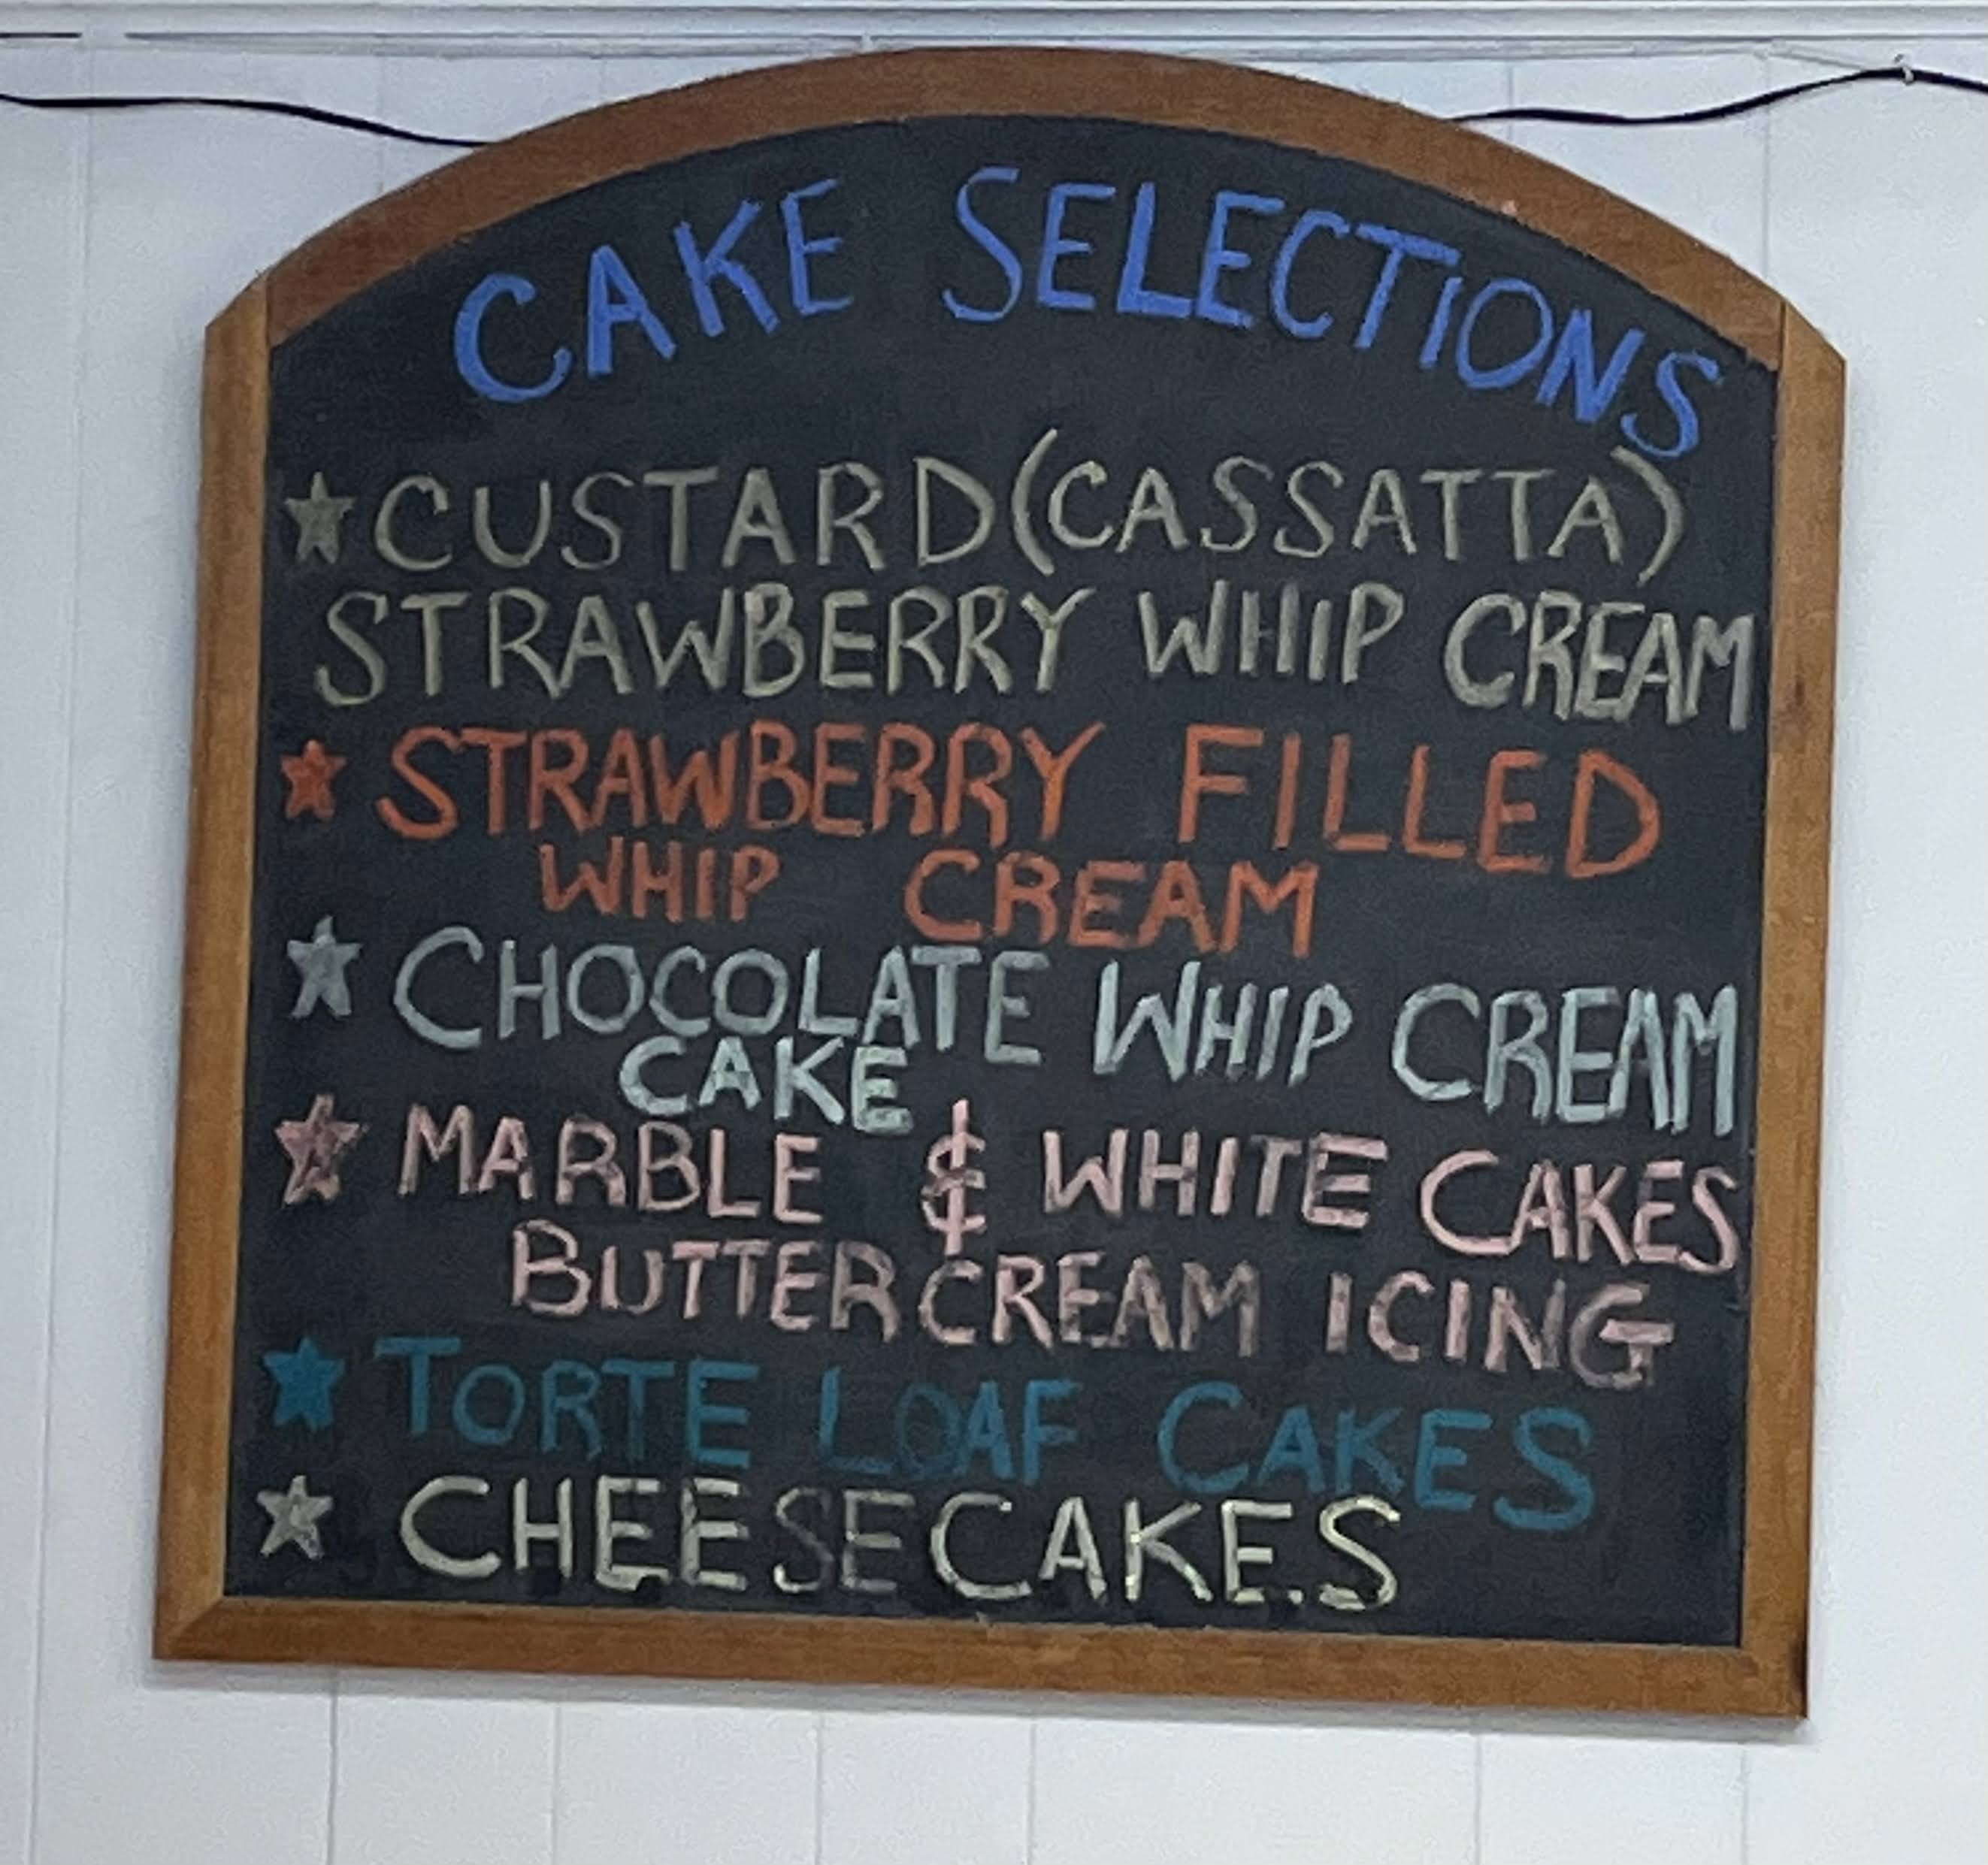 CAKE SELECTIONS
★ CUSTARD (CASSATTA)
STRAWBERRY WHIP CREAM
★ STRAWBERRY FILLED
WHIP CREAM
★ CHOCOLATE WHIP CREAM
CAKE
★ MARBLE & WHITE CAKES
BUTTERCREAM ICING
★ TORTE LOAF CAKES
★ CHEESECAKES